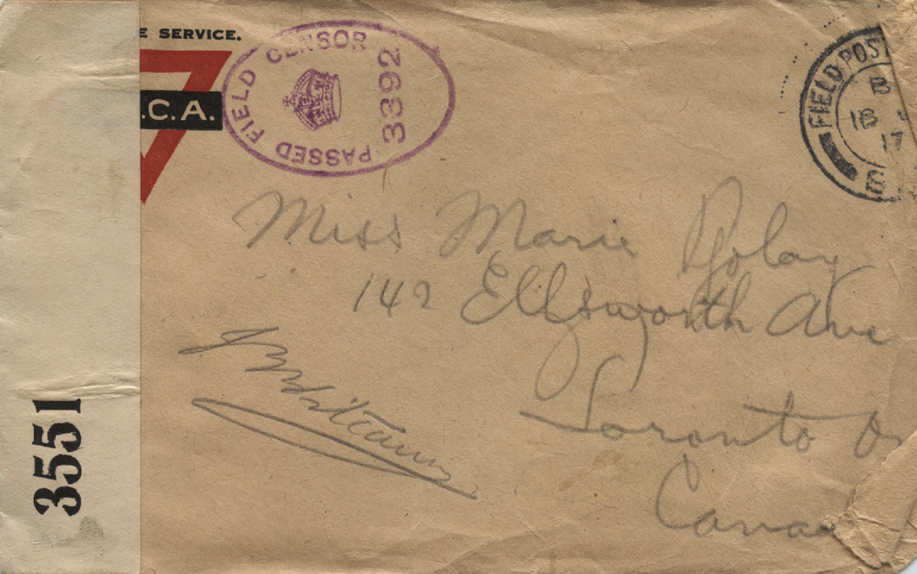 E SERVICE.
.C.A.
PASSED FIELD CENSOR
3392
FIELD POST
17
Miss Marie
142 Ellsworth Ave
Toronto
Cana
3551